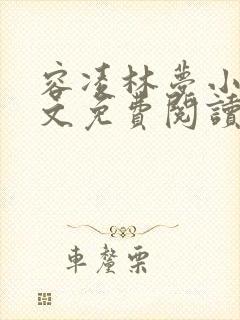 容凌林梦小
文免費閱讀
車釐栗